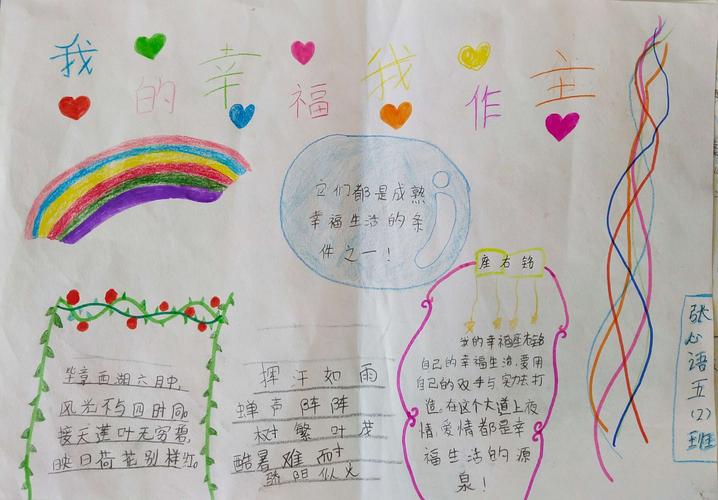 我的幸福我作主
它们都是成熟
幸福生活的条
件之一！
座右铭
我的幸福座右铭
自己的幸福生活,要用
自己的双手与实力去打
造,在这个大道上友
情,爱情都是幸
福生活的源
泉！
毕竟西湖六月中,
风光不与四时同。
接天莲叶无穷碧,
映日荷花别样红。
挥汗如雨
蝉声阵阵
树繁叶茂
酷暑难耐
骄阳似火
张心语五(2)班